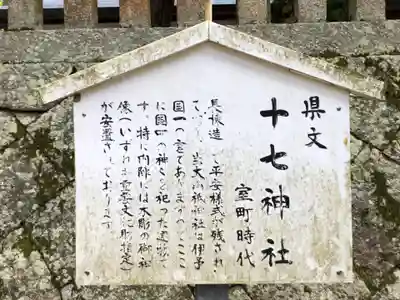 県文
十七神社
室町時代
長棟造　　て平安様式が残され
て　　、当大山祇神社は伊予
国一の宮でありますのでここ
に国中の神々を祀った遥拝
す。特に内陣には木彫の御
像（いずれも重要文化財指定）
が安置されております